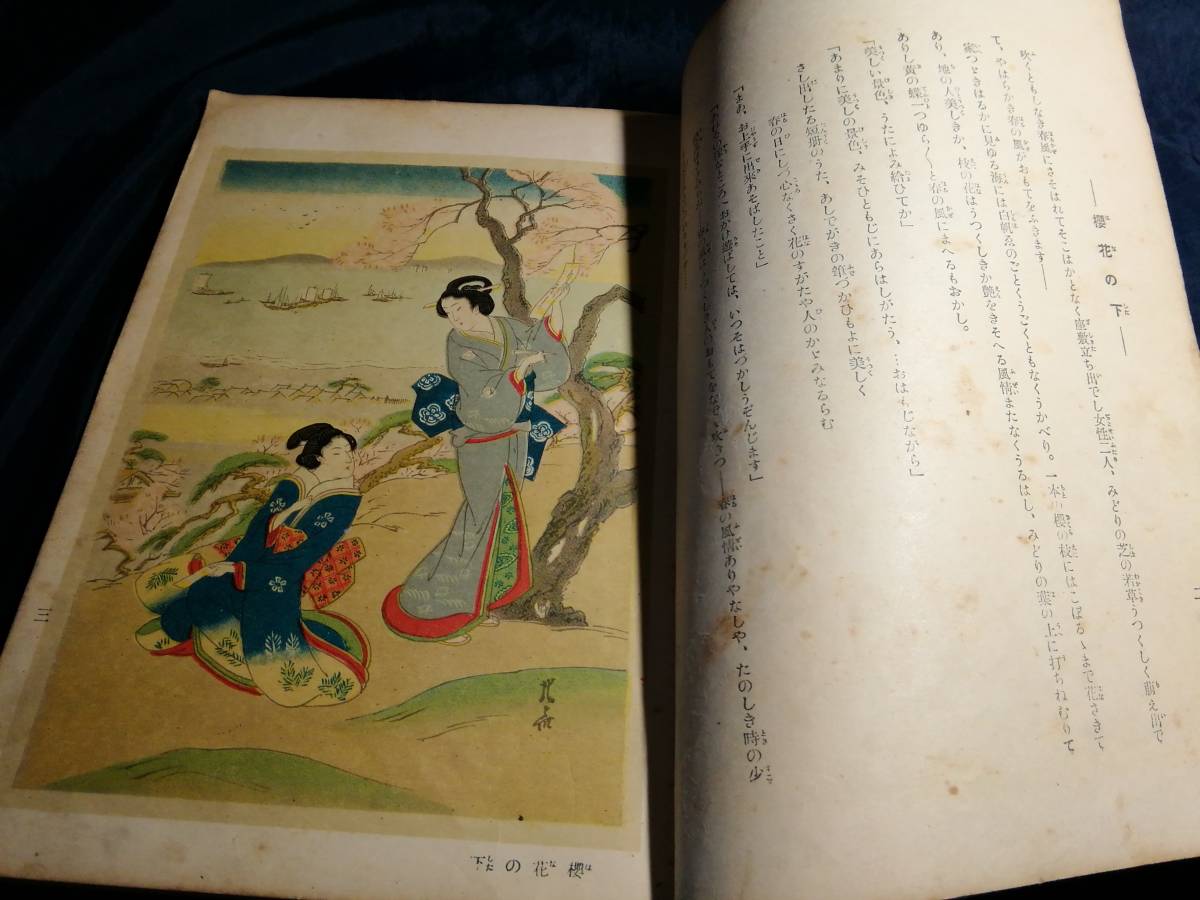 ――櫻花の下――
吹くともしなき春風にさそはれてそこはかとなく座敷立ち出でし女性二人、みどりの芝の若草うつくしく萠え出で
て、やはらかき春の風がおもてをふきます――
あり、地の人美しきか、枝の花はうつくしきか艶をきそへる風情またなくうるはし、みどりの葉の上に打ちねむりて
ありし黄の蝶一つゆら〱と春の風にまへるもおかし。
「美しい景色、うたによみ給ひてか」
「あまりに美しの景色、みそひともじにあらはしがたう、…おはもじながら」
さし出したる短册のうた、あしでがきの筆つかひもよに美しく
春の日にしづ心なくさく花のすがたや人のかゞみなるらむ
「まあ、お上手に出来あそばしたこと」
いつそはつかしうぞんじます」
春の風情ありやなしや、たのしき時の少
三
櫻花の下